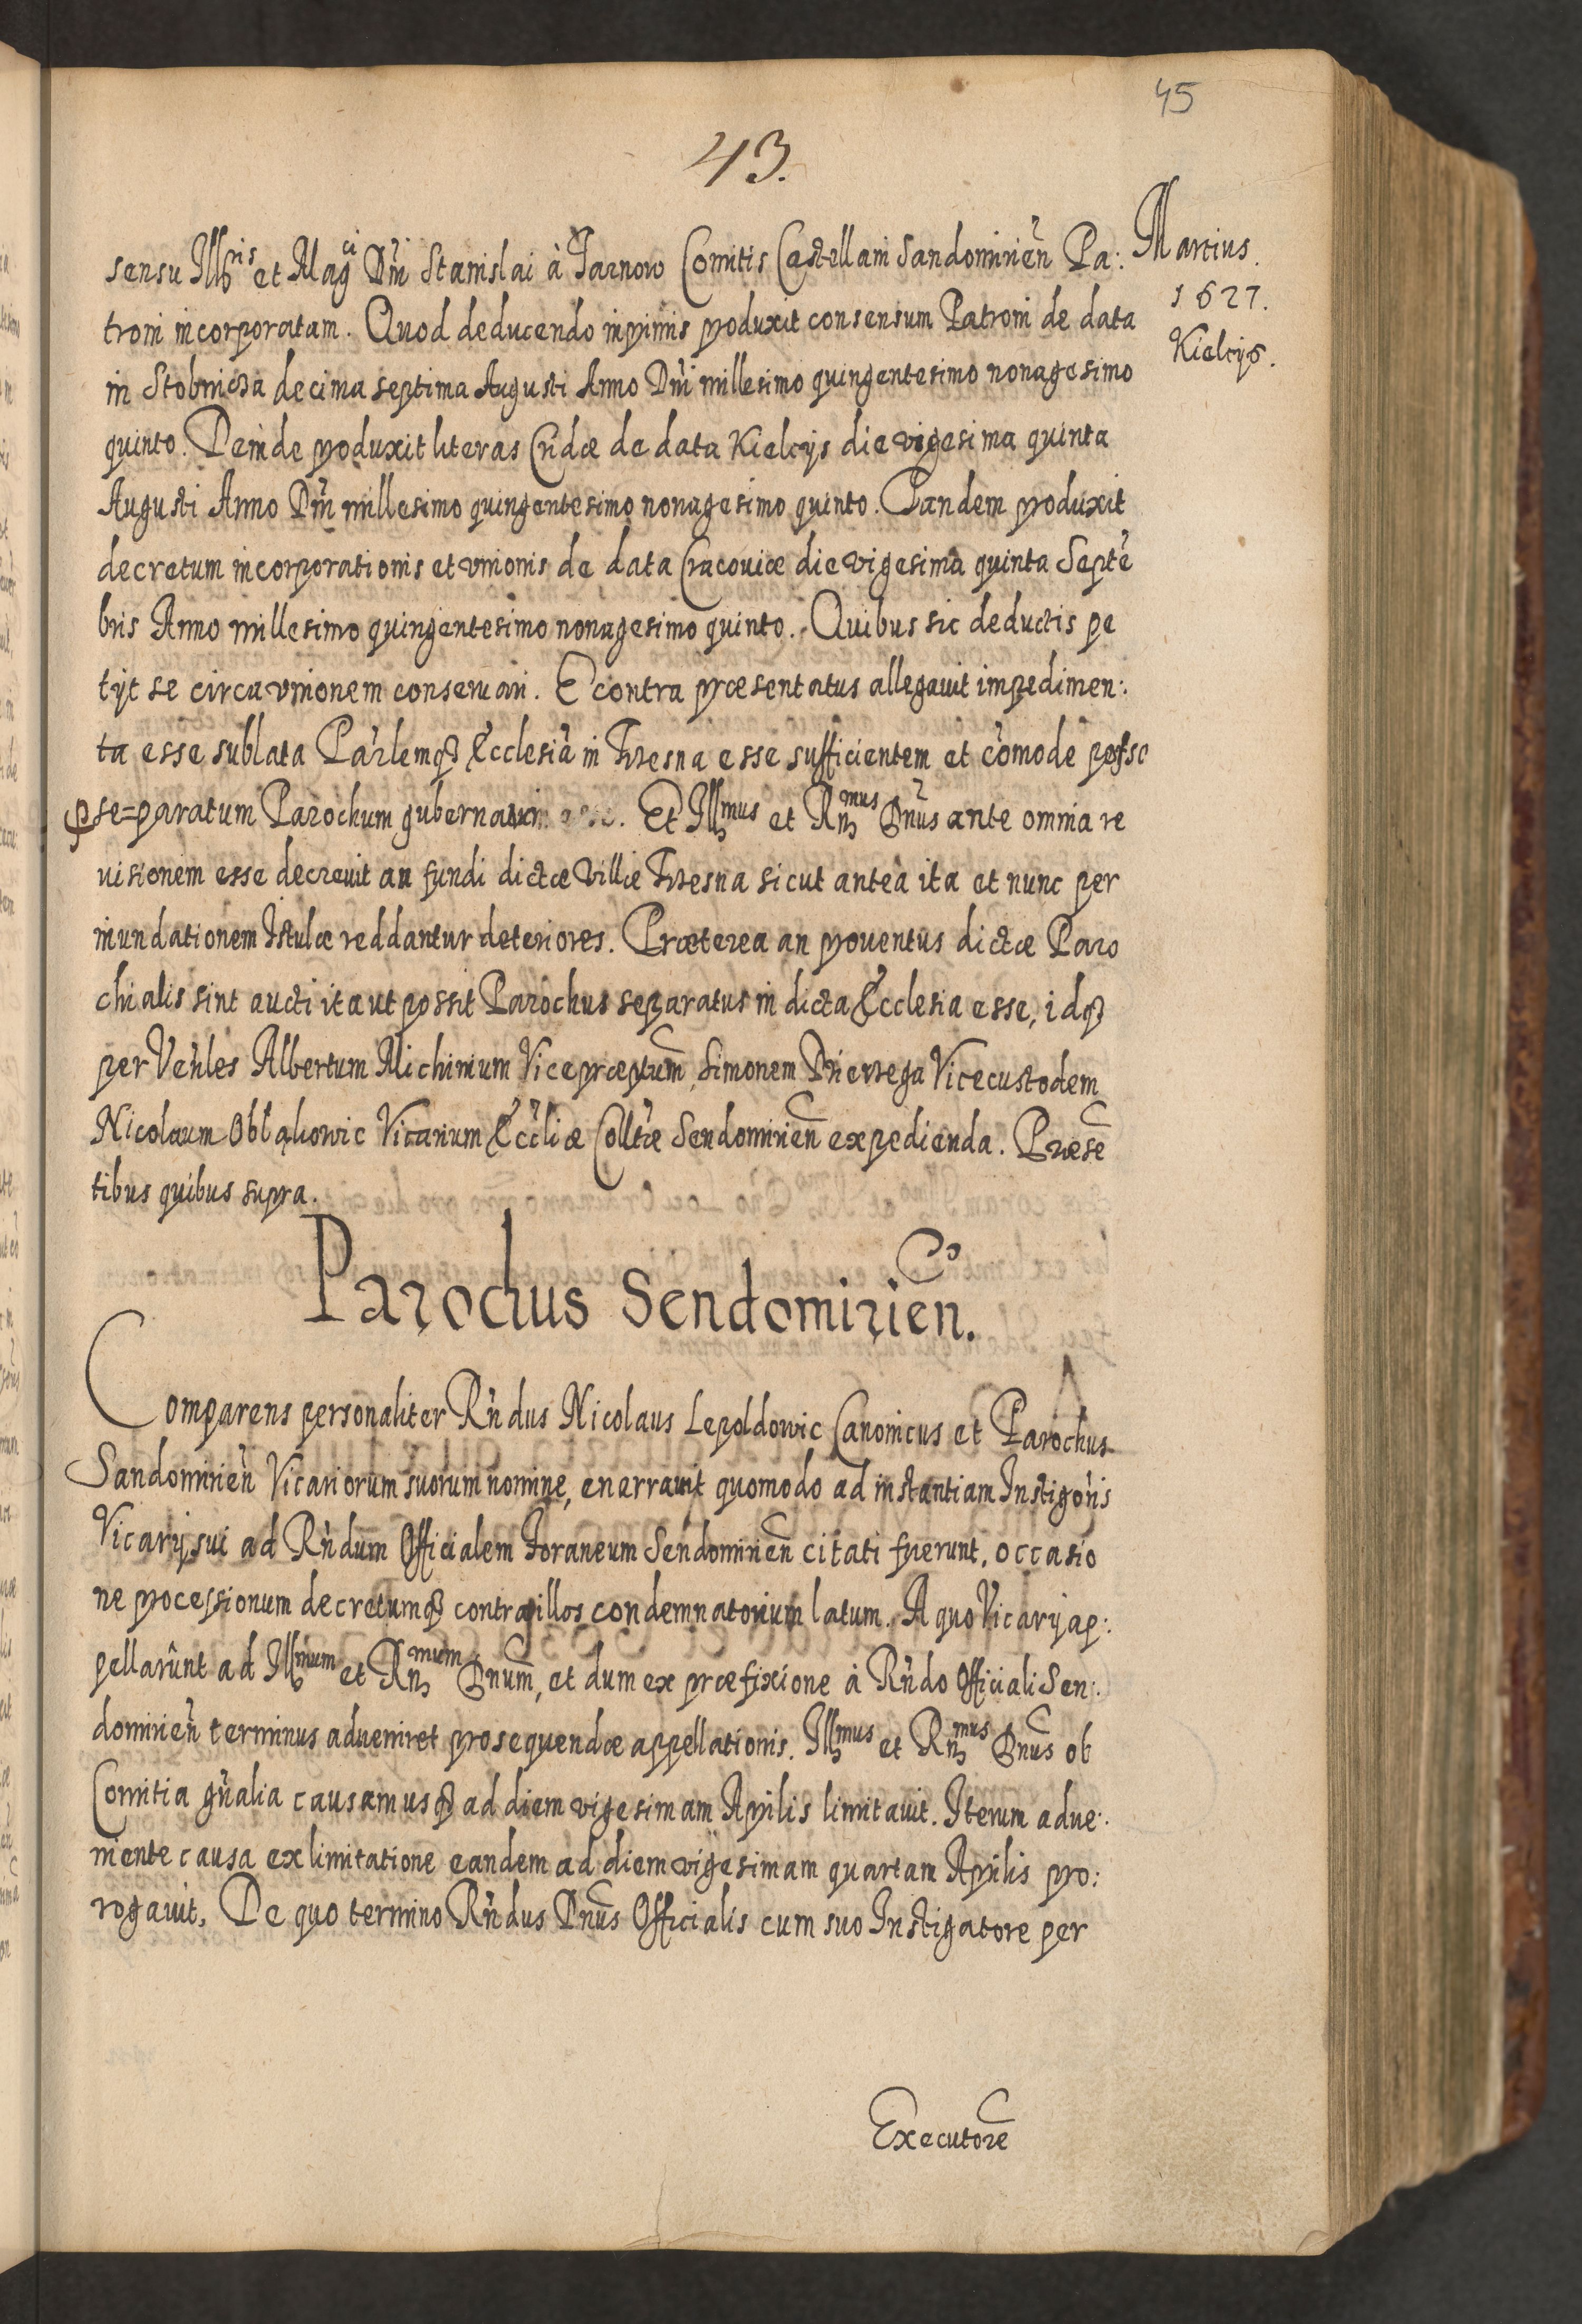 45
43.
Martius.
1627.
Kielcijs.
sensu Illris et Magci Dni Stanislai à Tarnow Comitis Castellani Sandomirien̄ Pa:
troni incorporatam. Quod deducendo inprimis produxit consensum Patroni de data
in Stobnicza decima septima Augusti Anno Dn̄i millesimo quingentesimo nonagesimo
quinto. Deinde produxit literas Cridæ de data Kielcijs die vigesima quinta
Augusti Anno Dn̄i millesimo quingentesimo nonagesimo quinto. Tandem produxit
decretum incorporationis et vnionis de data Cracouiæ die vigesima quinta Septē
bris Anno millesimo quingentesimo nonagesimo quinto. Quibus sic deductis pe
tijt se circa vnionem conseruari. E contra præsentatus allegauit impedimen:
ta esse sublata Par̄lemq₃ Ecclesiā in Trzesna esse sufficientem et cōmode posse
ꝑ se=paratum Parochum gubernari. Et Illmus et Rnmus Dn̄us ante omnia re
uisionem esse decreuit an fundi dictæ Villæ Trzesna sicut anteà ita et nunc per
inundationem Istulæ reddantur deteriores. Præterea an prouentus dictæ Paro
chialis sint aucti ita ut possit Parochus separatus in dicta Ecclesia esse, idq₃
per Ven̄les Albertum Michinium Vicepræptum̄, Simonem Vicecustodem
Nicolaum Obłąkowic Vicarium Eccl̄iæ Coll̄tæ Sendomirien̄ expedienda. Præsē
tibus quibus supra.
Parochus Sendomirien̄.
Comparens personaliter Rn̄dus Nicolaus Lepoldowic Canonicus et Parochus
Sandomirien̄ Vicariorum suorum nomine, enarrauit quomodo ad instantiam Instigōris
Vicarij sui ad Rn̄dum Officialem Foraneum Sendomirien̄ citati fuerunt, occasio
ne processionum decretumq₃ contra illos condemnatorium latum. A quo Vicarij ap:
pellarūnt ad Illmum et Rnmum Dn̄um, et dum ex præfixione à Rn̄do Officiali Sen:
domirien̄ terminus adueniret prosequendæ appellationis. Illmus et Rnmus Dn̄us ob
Comitia gn̄alia causam usq₃ ad diem vigesimam Aprilis limitauit. Iterum adue:
niente causa ex limitatione eandem ad diem vigesimam quartam Aprilis pro:
rogauit. De quo termino Rn̄dus Dn̄us Officialis cum suo Instigatore per
Executorē